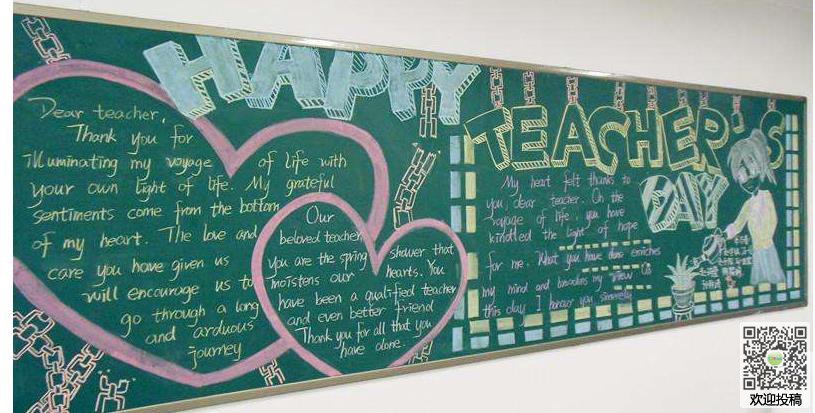 HAPPY
TEACHER'S
DAY
Dear teacher,
Thank you for
illuminating my voyage of life with
your own light of life. My grateful
sentiments come from the bottom
of my heart. The love and
care you have given us
will encourage us to
go through a long
and arduous
journey
Our
beloved teacher,
you are the spring shower that
moistens our hearts. You
have been a qualified teacher
and even better friend
Thank you for all that you
have done.
My heart felt thanks to
you, dear teacher. On the
voyage of life, you have
kindled the light of hope
for me. What you have done enriches
my mind and broadens my view. On
this day I honour you sincerely
欢迎投稿